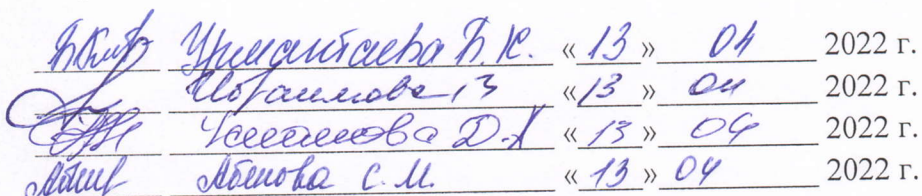 Урмантаева Б.К. «13» 04 2022 г.
Ибраимова «13» 04 2022 г.
Усманова Д.Х «13» 04 2022 г.
Абенова С.М. «13» 04 2022 г.